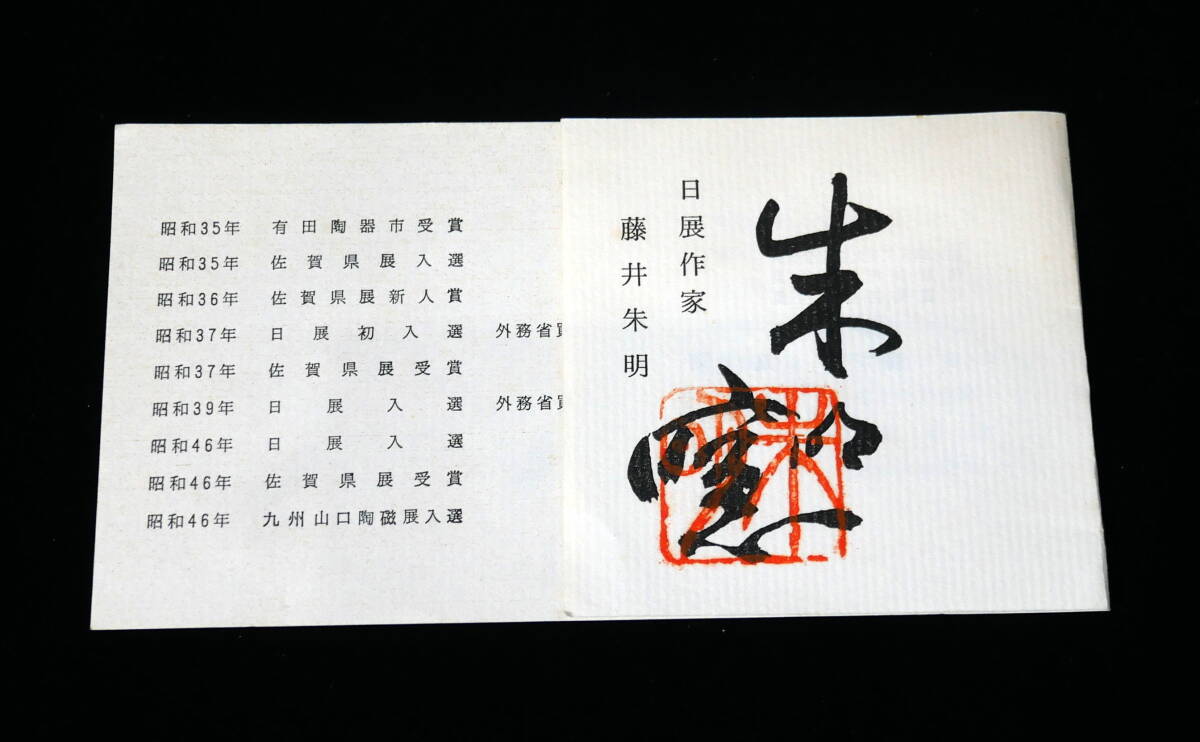 昭和35年 有田陶器市受賞
昭和35年 佐賀県展入選
昭和36年 佐賀県展新人賞
昭和37年 日展初入選 外務省買
昭和37年 佐賀県展受賞
昭和39年 日展入選 外務省買
昭和46年 日展入選
昭和46年 佐賀県展受賞
昭和46年 九州山口陶磁展入選
朱
日展作家
藤井朱明